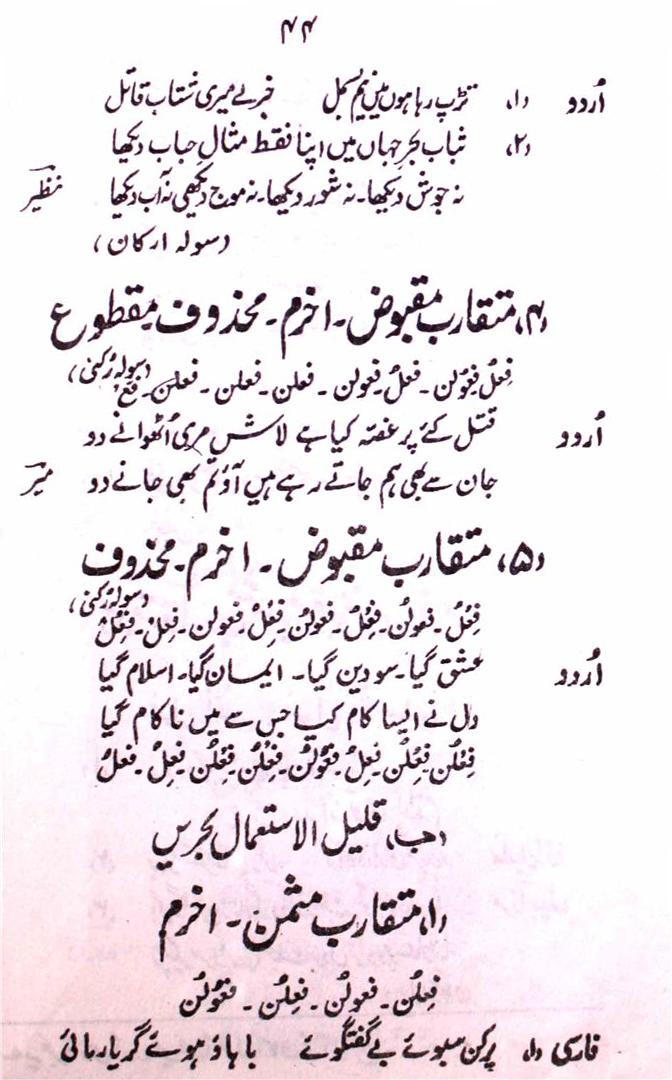 ۴۴
اُردو (۱) تڑپ رہا ہوں میں نیم بسمل خبر لے میری شتاب قاتل
(۲) شباب بحر جہاں میں اپنا فقط مثال حباب دیکھا
نہ جوش دیکھا۔ نہ شور دیکھا۔ نہ موج دیکھی نہ آب دیکھا نظیر
(سولہ ارکان)
(۴) متقارب مقبوض۔ اخرم۔ محذوف مقطوع
فِعْلُ فَعُوْلن۔ فعلُ فعولن۔ فعلن۔ فعلن۔ فعلن۔ فع (سولہ رُکنی)
اُردو قتل کئے پر غصّہ کیا ہے لاش مری اُٹھوانے دو
جان سے بھی ہم جاتے رہے ہیں آؤ تم بھی جانے دو میر
(۵) متقارب مقبوض۔ اخرم۔ محذوف
(سولہ رُکنی)
فِعْلُ۔ فعولُن۔ فِعْلُ۔ فعولُن۔ فِعْلُ۔ فعولن۔ فِعلُ۔ فِعْلُ
اُردو عشق گیا۔ سو دین گیا۔ ایمان گیا۔ اسلام گیا
دل نے ایسا کام کیا جس سے میں ناکام گیا
فِعْلُن۔ فِعْلُن۔ فِعلُ۔ فعُولُن۔ فِعْلُن۔ فِعْلُن۔ فِعلُ۔ فعلُ
(ب) قلیل الاستعمال بحریں
(۱) متقارب مثمن۔ اخرم
فِعلُن۔ فعولُن۔ فِعلُن۔ فعُولُن
فارسی (۱) پرکن سبوئے بے گفتگوئے با ہاؤ ہوئے گر یار مائی